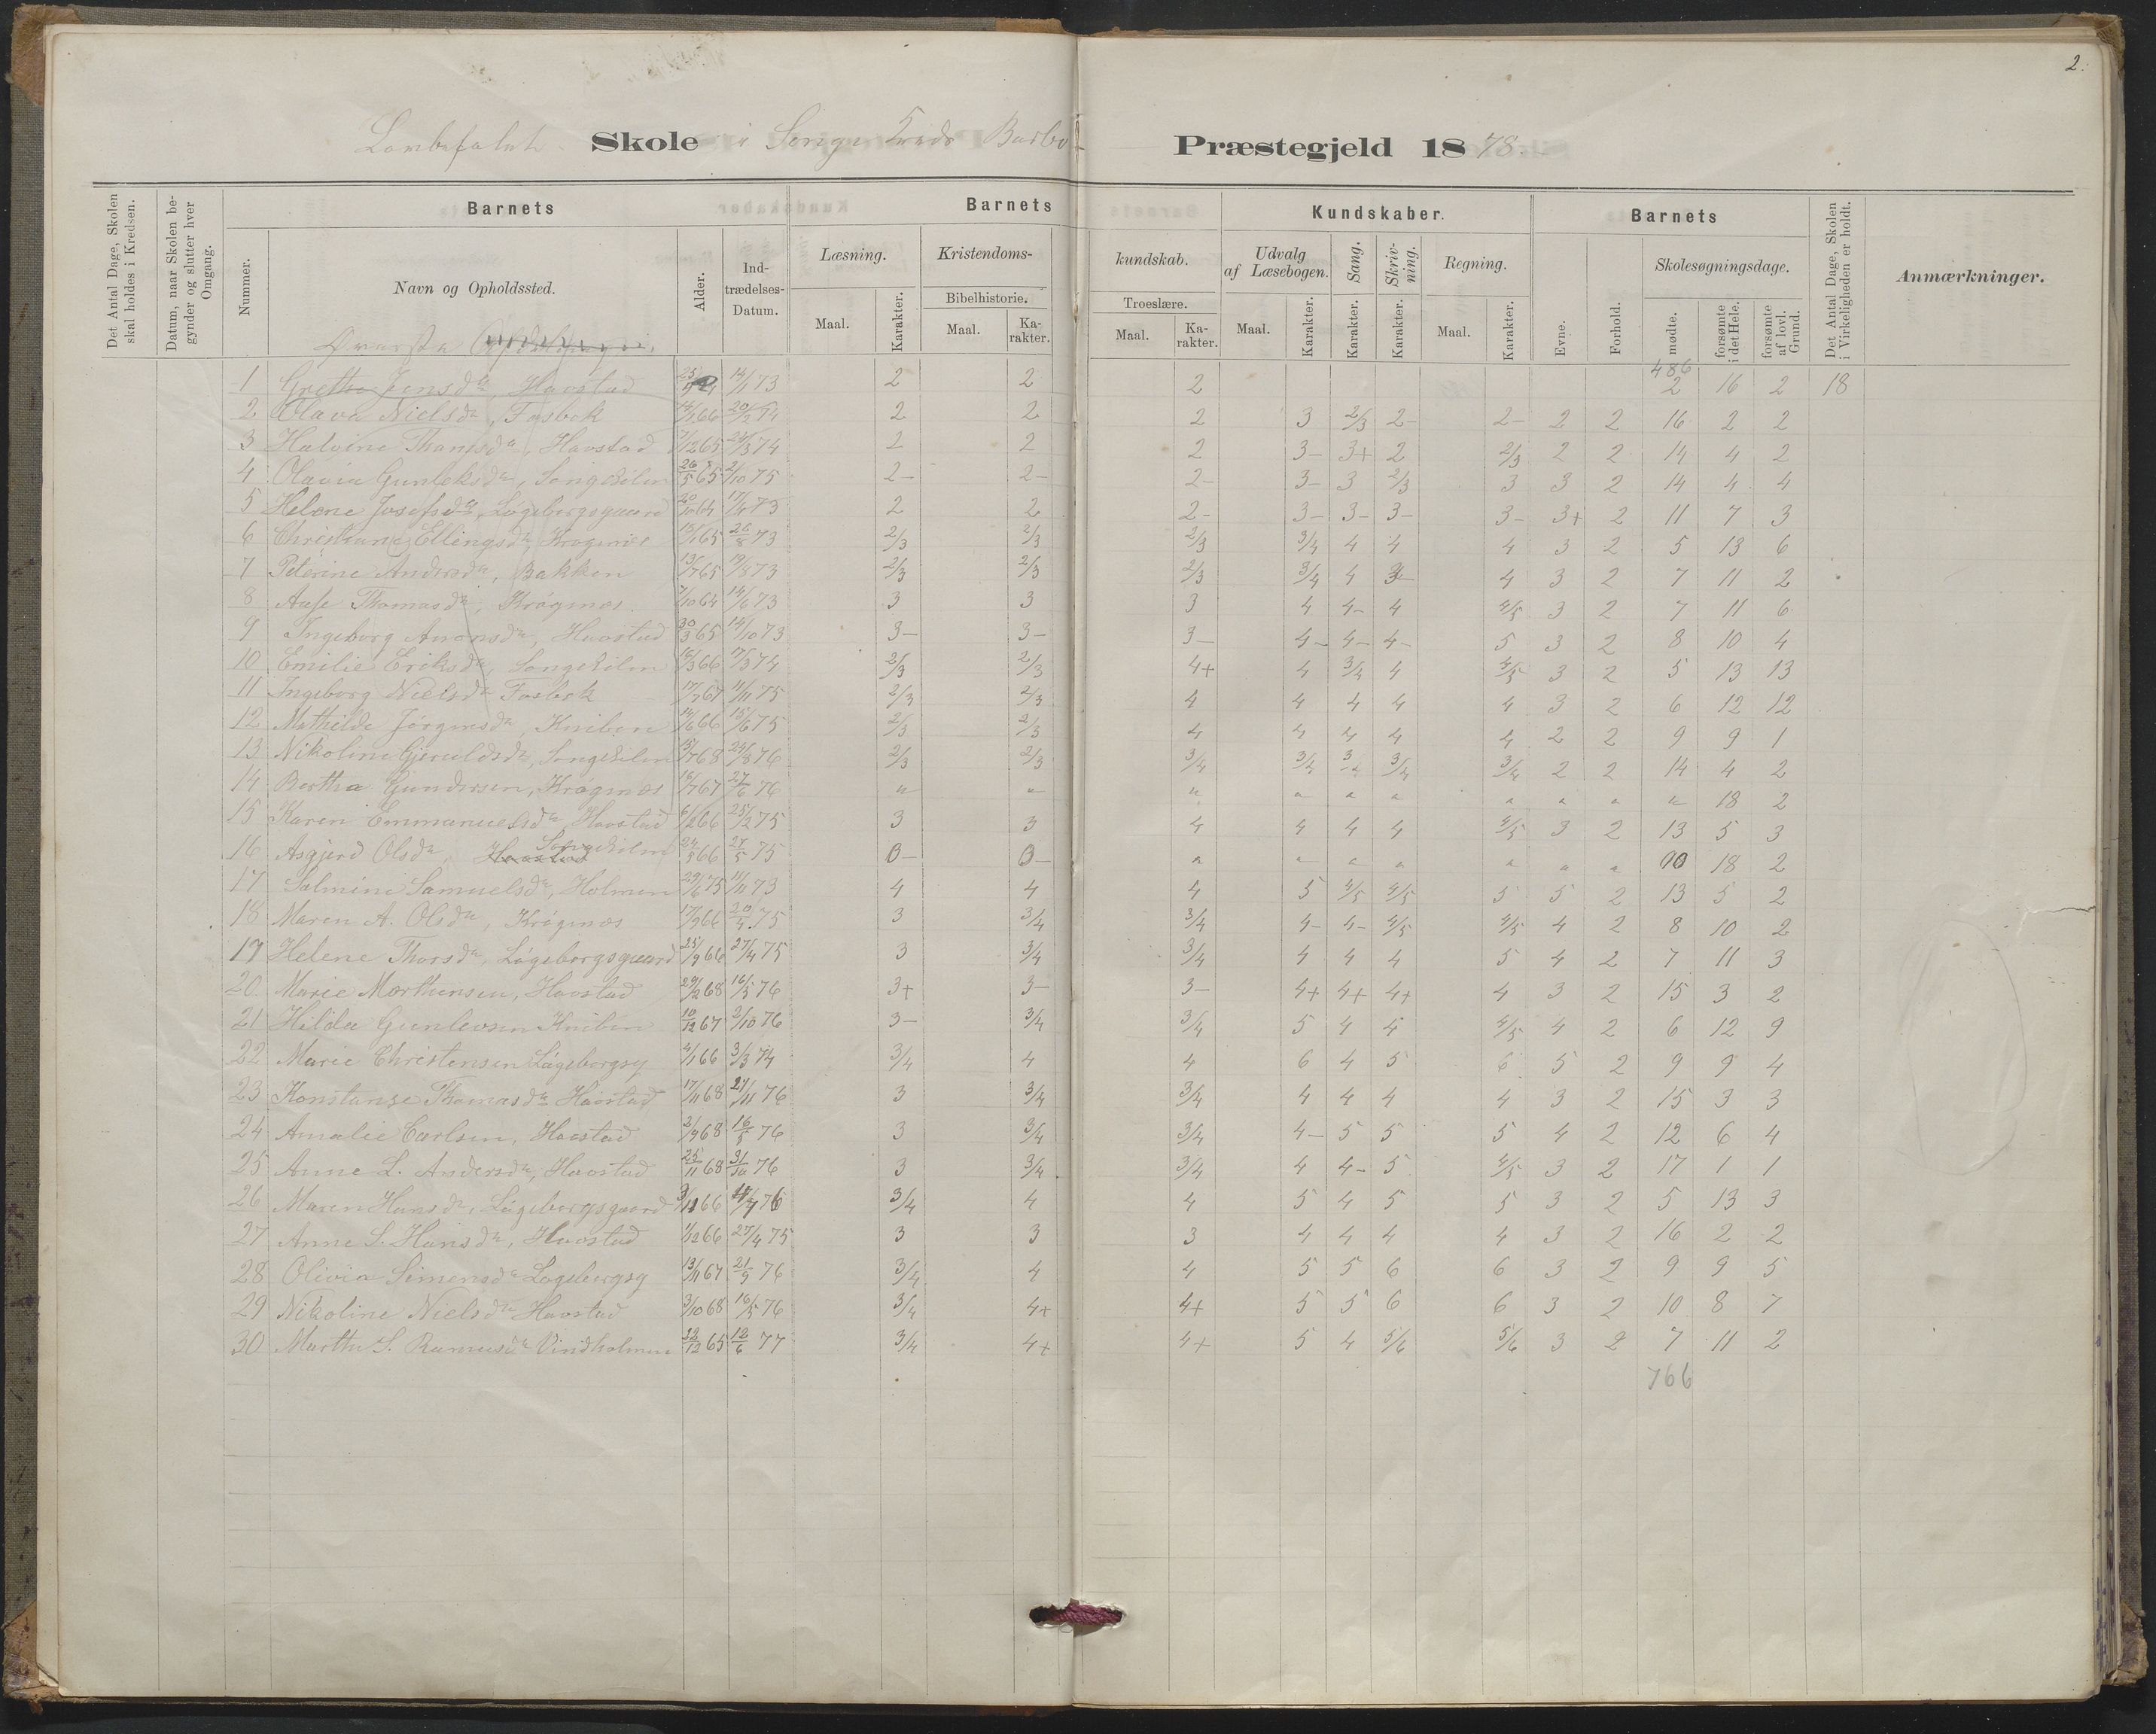 2.
Skole i Songe Kreds Barbo Præstegjeld 1878.
Det Antal Dage, Skolen skal holdes i Kredsen.
Datum, naar Skolen begynder og slutter hver Omgang.
Barnets
Nummer.
Navn og Opholdssted.
Alder.
Indtrædelses-Datum.
Barnets Kundskaber.
Læsning.
Maal.
Karakter.
Kristendoms-kundskab.
Bibelhistorie.
Maal.
Karakter.
Troeslære.
Maal.
Karakter.
Udvalg af Læsebogen.
Maal.
Karakter.
Sang.
Karakter.
Skrivning.
Karakter.
Regning.
Maal.
Karakter.
Barnets
Evne.
Forhold.
Skolesøgningsdage.
mødte.
forsømte i det Hele.
forsømte af lovl. Grund.
Det Antal Dage, Skolen i Virkeligheden er holdt.
Anmærkninger.
Øverste
486
1 Grethe Jensdr, Havstad 14/1 73 2 2 2 2 16 2 18
2 Olava Nielsdr, Fosbek 66 20/2 74 2 2 2 3 2/3 2- 2- 2 2 16 2 2
3 Halvine Thomsdr, Havstad 7/12 65 24/3 74 2 2 2 3- 3+ 2 2/3 2 2 14 4 2
4 Olavia Gunleksdr, Songekilen 26/5 65 2/10 75 2- 2- 2- 3- 3 2/3 3 3 2 14 4 4
5 Helene Josefsdr, Løgeborgsgaard 20/10 64 17/4 73 2 2 2- 3- 3- 3- 3- 3+ 2 11 7 3
6 Christiane Ellingsdr, Krøgenes 65 26/8 73 2/3 2/3 2/3 3/4 4 4 4 3 2 5 13 6
7 Peterine Andersdr, Bakken 13/7 65 19/8 73 2/3 2/3 2/3 3/4 4 3- 4 3 2 7 11 2
8 Aase Thomasdr, Krøgenes. 7/10 64 14/6 73 3 3 3 4 4- 4 4/5 3 2 7 11 6
9 Ingeborg Anonsdr, Havstad 30/3 65 14/10 73 3- 3- 3- 4- 4- 4- 5 3 2 8 10 4
10 Emilie Eriksdr, Songekilen 16/3 66 17/3 74 2/3 2/3 4+ 4 3/4 4 4/5 3 2 5 13 13
11 Ingeborg Nielsdr Fosbek 17/7 67 11/11 75 2/3 2/3 4 4 4 4 4 3 2 6 12 12
12 Mathilde Jørgensdr, Kniben 14/6 66 15/6 75 2/3 2/3 4 4 4 4 4 2 2 9 9 1
13 Nikoline Gjeruldsdr, Songekilen 15/7 68 24/8 76 2/3 2/3 3/4 3/4 3/4 3/4 3/4 2 2 14 4 2
14 Berthe Gundersen, Krøgenes 18/7 67 27/6 76 " " " " " " " " " " 18 2
15 Karen Emmanuelsdr, Havstad 6/2 66 25/2 75 3 3 4 4 4 4 4/5 3 2 13 5 3
16 Asgjerd Olsdr, Havstad Songekilen 24/5 66 27/5 75 0- 0- " " " " " " " 00 18 2
17 Salmine Samuelsdr, Holmen 29/6 75 11/11 73 4 4 4 5 4/5 4/5 5 5 2 13 5 2
18 Maren A. Olsdr, Krøgenes 17/9 66 20/4 75 3 3/4 3/4 4- 4- 4/5 4/5 4 2 8 10 2
19 Helene Thorsdr, Løgeborgsgaard 25/9 66 27/4 75 3 3/4 3/4 4 4 4 5 4 2 7 11 3
20 Marie Morthensen, Havstad 29/2 68 16/5 76 3+ 3- 3- 4+ 4+ 4+ 4 3 2 15 3 2
21 Hilda Gunlevsen Kniben 10/12 67 2/10 76 3- 3/4 3/4 5 4 5 4/5 4 2 6 12 9
22 Marie Christensen Løgeborgsg 4/1 66 3/3 74 3/4 4 4 6 4 5 6 5 2 9 9 4
23 Konstanse Thomasdr Havstad 17/11 68 27/11 76 3 3/4 3/4 4 4 4 4 3 2 15 3 3
24 Amalie Carlsen, Havstad 2/9 68 16/5 76 3 3/4 3/4 4- 5 5 5 4 2 12 6 4
25 Anne L. Andersdr, Havstad 25/11 68 31/10 76 3 3/4 3/4 4 4- 5 4/5 3 2 17 1 1
26 Maren Hansdr, Løgeborgsgaard 3/11 66 76 3/4 4 4 5 4 5 5 3 2 5 13 3
27 Anne S. Hansdr, Havstad 1/12 66 27/4 75 3 3 3 4 4 4 4 3 2 16 2 2
28 Olivia Simensdr Løgeborgsg 13/11 67 21/9 76 3/4 4 4 5 5 6 6 3 2 9 9 5
29 Nikoline Nielsdr Havstad 3/10 68 16/5 76 3/4 4+ 4+ 5 5 6 6 3 2 10 8 7
30 Marthe S. Rasmusdr Vindholmen 65 12/6 77 3/4 4+ 4+ 5 4 5/6 5/6 3 2 7 11 2
766